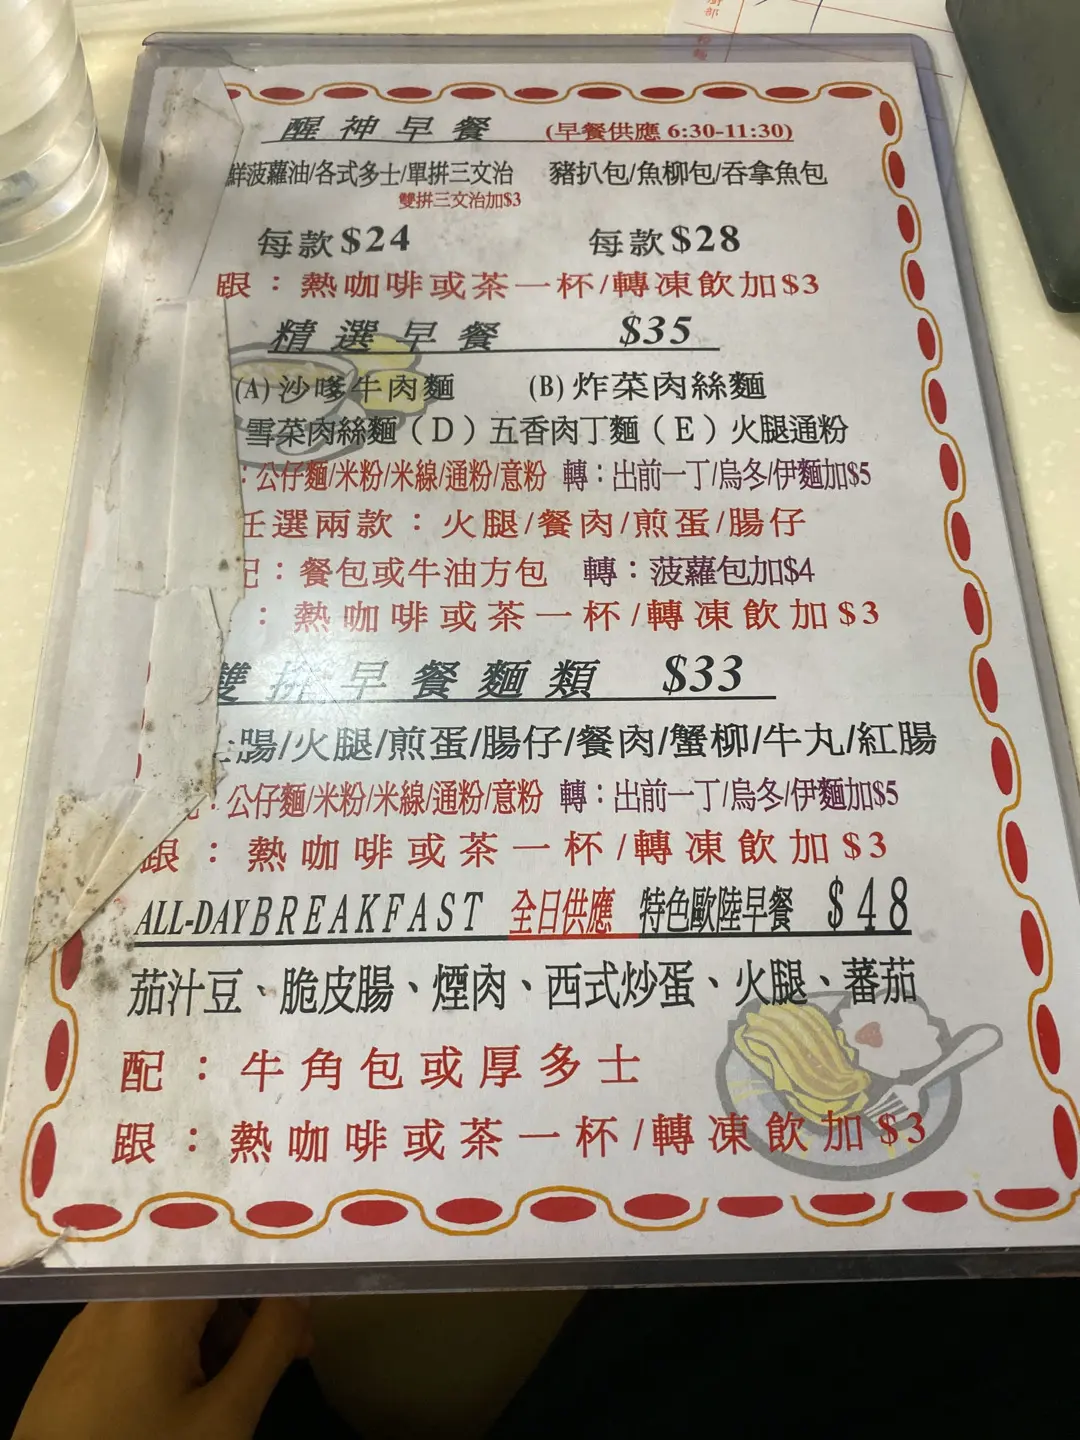 醒神早餐 (早餐供應 6:30-11:30)
鮮菠蘿油/各式多士/單拼三文治 豬扒包/魚柳包/吞拿魚包
雙拼三文治加$3
每款$24 每款$28
跟：熱咖啡或茶一杯/轉凍飲加$3
精選早餐 $35
(A)沙嗲牛肉麵 (B)炸菜肉絲麵
雪菜肉絲麵（D）五香肉丁麵（E）火腿通粉
：公仔麵/米粉/米線/通粉/意粉 轉：出前一丁/烏冬/伊麵加$5
任選兩款：火腿/餐肉/煎蛋/腸仔
配：餐包或牛油方包 轉：菠蘿包加$4
：熱咖啡或茶一杯/轉凍飲加$3
雙拼早餐麵類 $33
腸/火腿/煎蛋/腸仔/餐肉/蟹柳/牛丸/紅腸
：公仔麵/米粉/米線/通粉/意粉 轉：出前一丁/烏冬/伊麵加$5
跟：熱咖啡或茶一杯/轉凍飲加$3
ALL-DAY BREAKFAST 全日供應 特色歐陸早餐 $48
茄汁豆、脆皮腸、煙肉、西式炒蛋、火腿、蕃茄
配：牛角包或厚多士
跟：熱咖啡或茶一杯/轉凍飲加$3